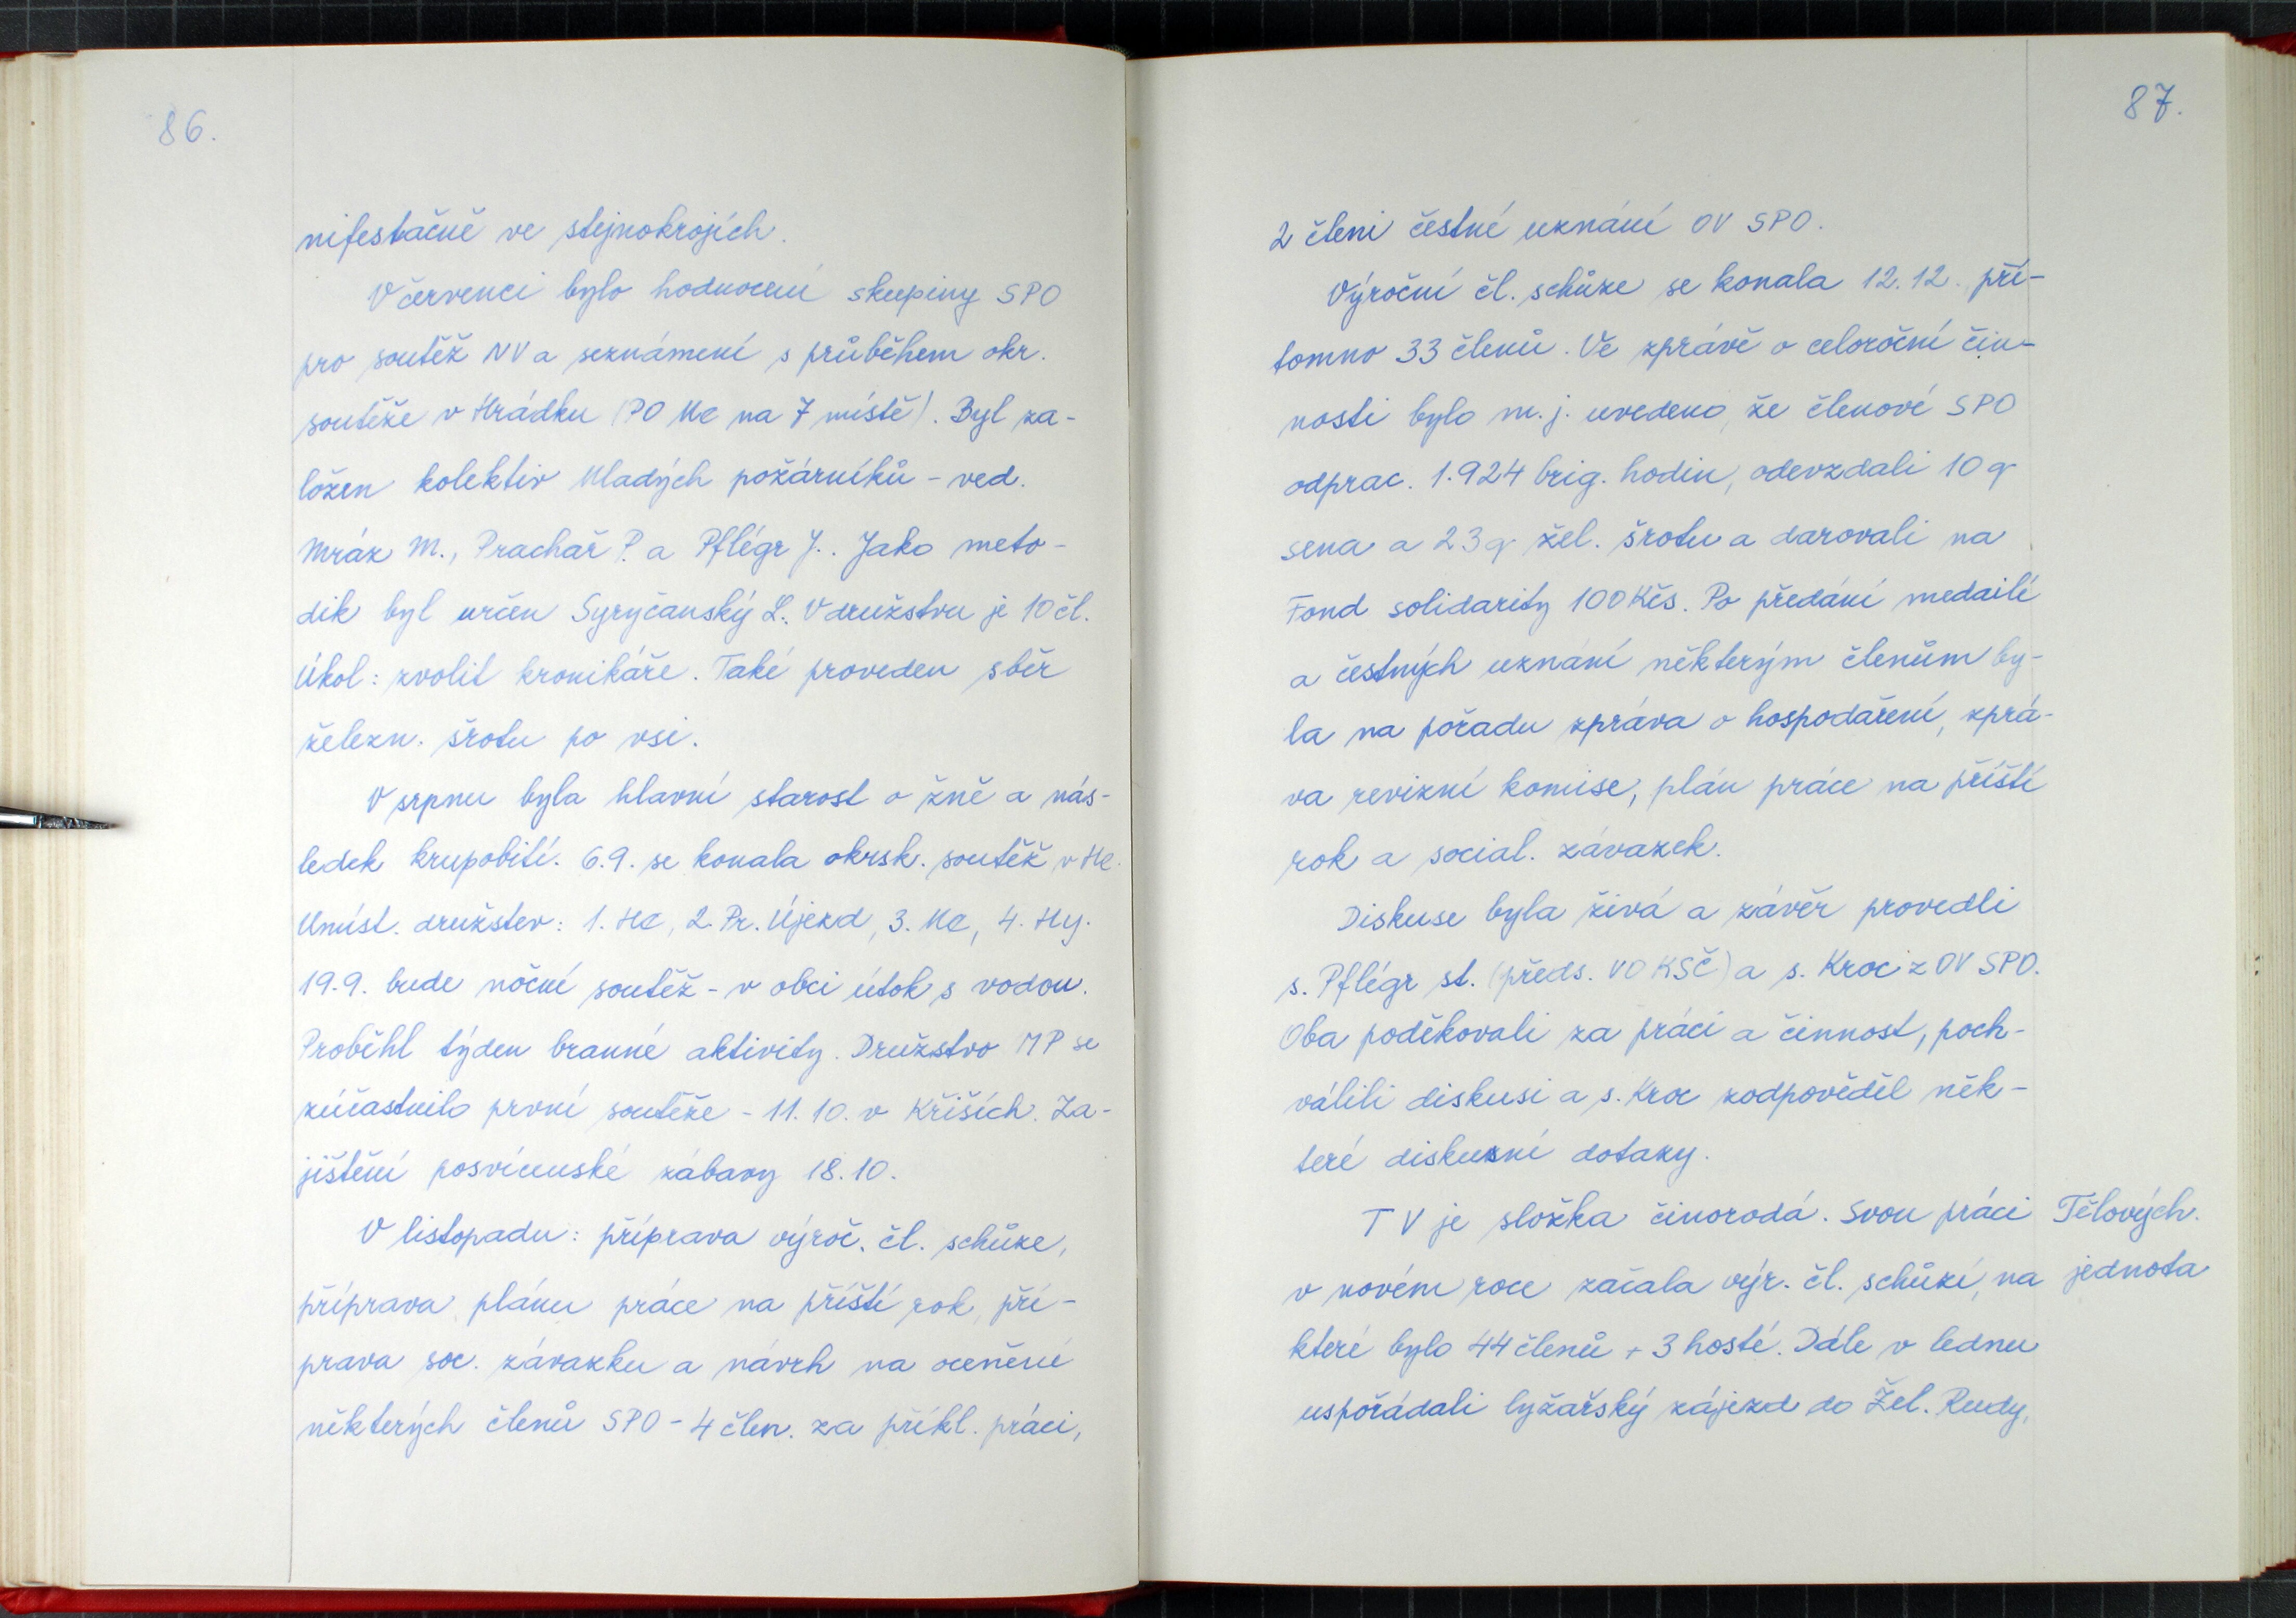 86.
nifestačně ve stejnokrojích.
V červenci bylo hodnocení skupiny SPO
pro soutěž NV a seznámení s průběhem okr.
soutěže v Hrádku (PO Me na 7 místě). Byl za-
ložen kolektiv Mladých požárníků - ved.
Mráz M., Prachař P. a Pflégr J.. Jako meto-
dik byl určen Syryčanský L. V družstvu je 10 čl.
Úkol: zvolit kronikáře. Také proveden sběr
železn. šrotu po vsi.
V srpnu byla hlavní starost o žně a nás-
ledek krupobití. 6.9. se konala okrsk. soutěž v He.
Umíst. družstev: 1. He, 2. Př. Újezd, 3. Me, 4. Hy.
19.9. bude noční soutěž - v obci útok s vodou.
Proběhl týden branné aktivity. Družstvo MP se
zúčastnilo první soutěže - 11.10. v Křiších. Za-
jištění posvícenské zábavy 18.10.
V listopadu: příprava výroč. čl. schůze,
příprava plánu práce na příští rok, pří-
prava soc. závazku a návrh na ocenění
některých členů SPO - 4 člen. za příkl. práci,
87.
2 členi čestné uznání OV SPO.
Výroční čl. schůze se konala 12.12. pří-
tomno 33 členů. Ve zprávě o celoroční čin-
nosti bylo m.j. uvedeno, že členové SPO
odprac. 1.924 brig. hodin, odevzdali 10 q
sena a 23 q žel. šrotu a darovali na
Fond solidarity 100 Kčs. Po předání medailí
a čestných uznání některým členům by-
la na pořadu zpráva o hospodaření, zprá-
va revizní komise, plán práce na příští
rok a social. závazek.
Diskuse byla živá a závěr provedli
s. Pflégr st. (předs. VO KSČ) a s. Kroc z OV SPO.
Oba poděkovali za práci a činnost, poch-
válili diskusi a s. Kroc zodpověděl něk-
teré diskusní dotazy.
TV je složka činorodá. Svou práci
Tělových.
v novém roce začala výr. čl. schůzí, na
jednota
které bylo 44 členů + 3 hosté. Dále v lednu
uspořádali lyžařský zájezd do Žel. Rudy,